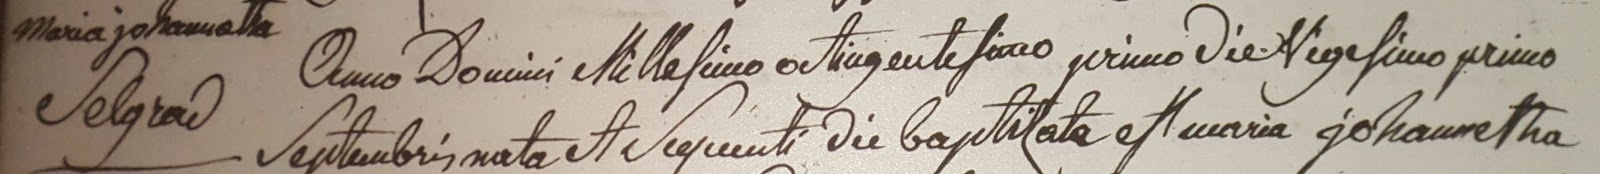 Maria johannetha
Selgrad
Anno Domini Millesimo octingentesimo primo die Vigesimo primo
Septembris nata et sequenti die baptisata est maria johannetha